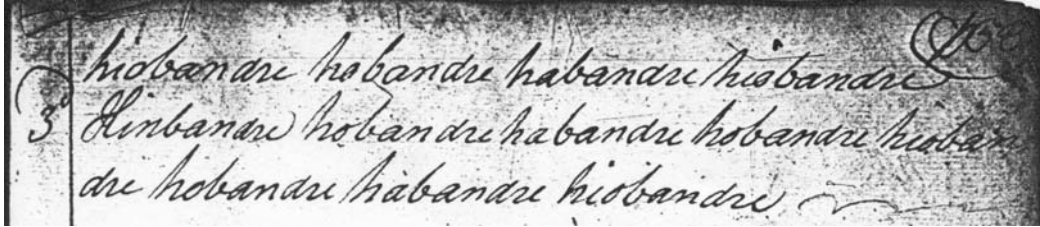 hiobandre hobandre habandre hiobandre
3 Hinbandre hobandre habandre hobandre hioban
dre hobandre habandre hiobandre